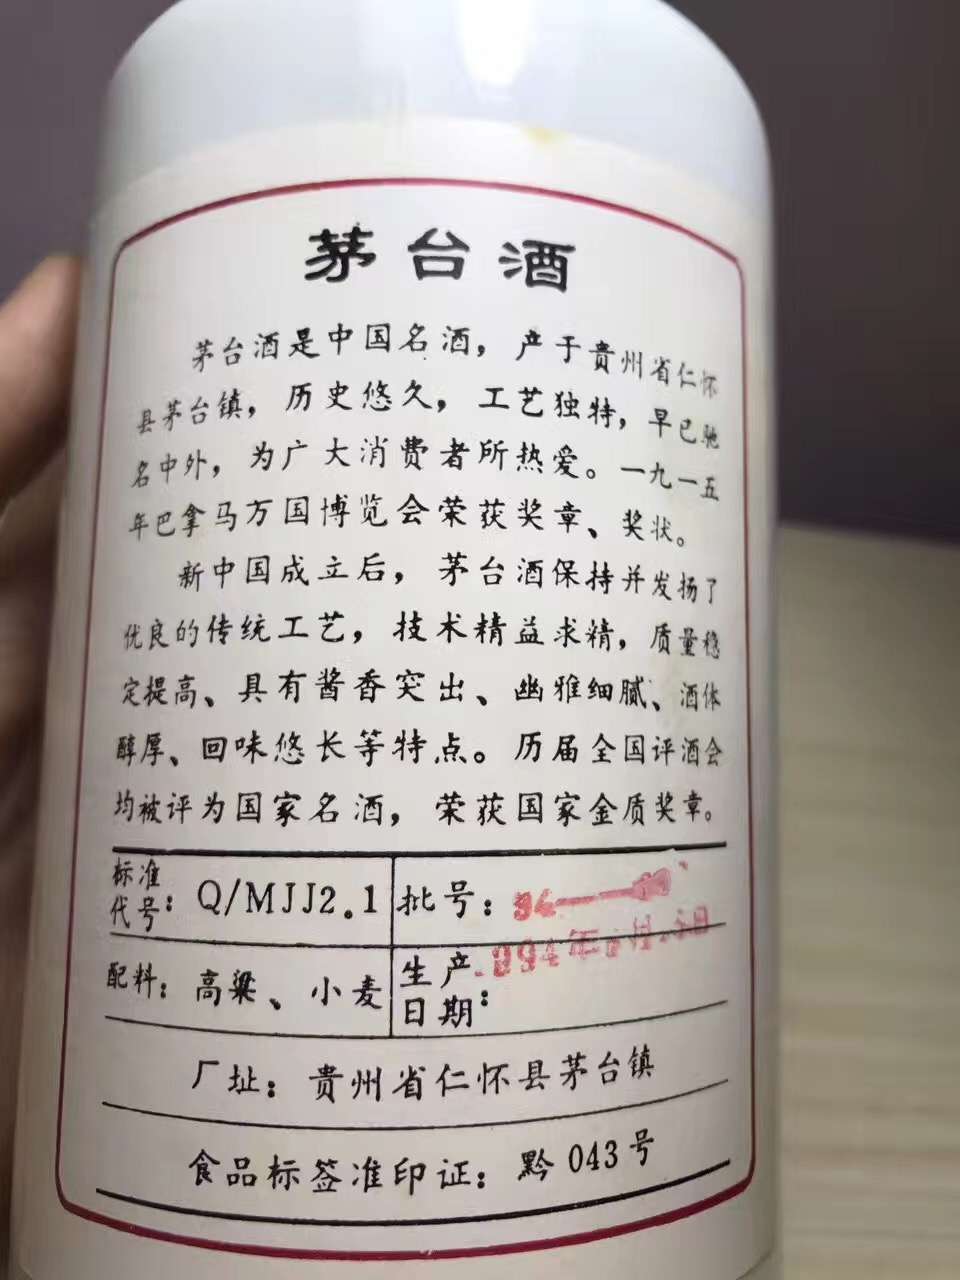 茅台酒
茅台酒是中国名酒，产于贵州省仁怀
县茅台镇，历史悠久，工艺独特，早已驰
名中外，为广大消费者所热爱。一九一五
年巴拿马万国博览会荣获奖章、奖状。
新中国成立后，茅台酒保持并发扬了
优良的传统工艺，技术精益求精，质量稳
定提高、具有酱香突出、幽雅细腻、酒体
醇厚、回味悠长等特点。历届全国评酒会
均被评为国家名酒，荣获国家金质奖章。
标准代号：Q/MJJ2.1
批号：94—
配料：高粱、小麦
生产日期：994年
厂址：贵州省仁怀县茅台镇
食品标签准印证：黔043号